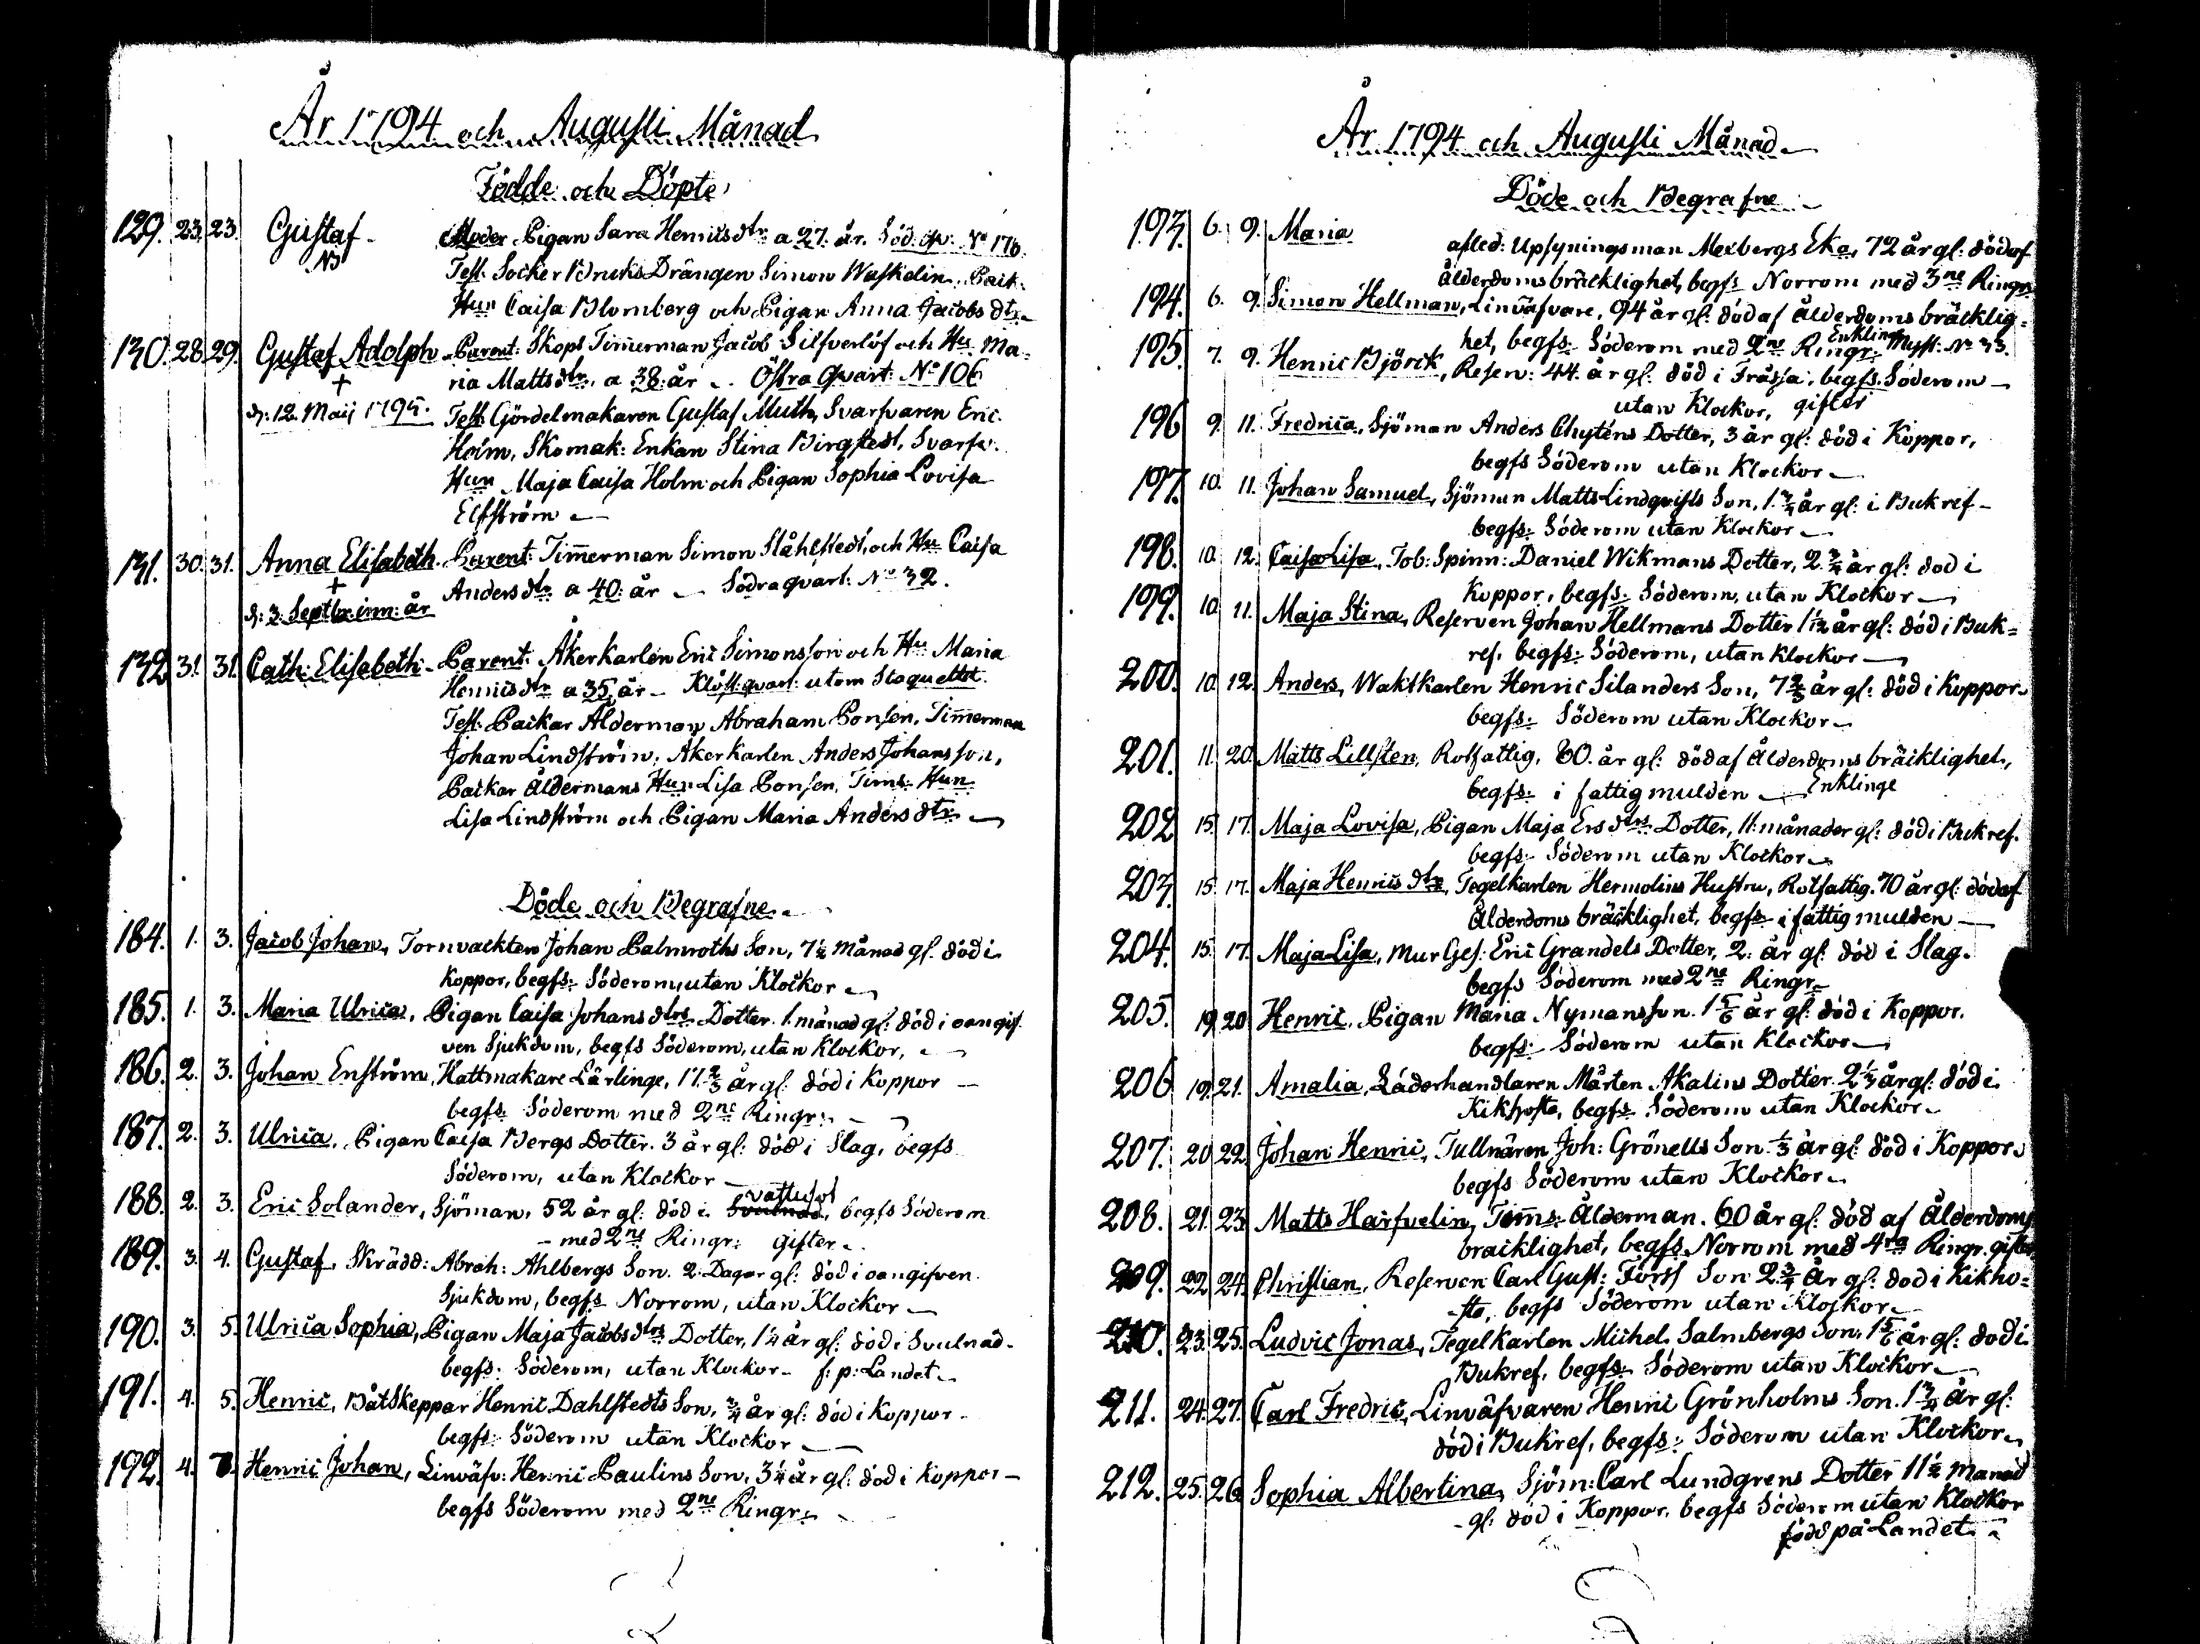 År 1794 och Augusti Månad
Födde och Döpte
129. 23. 23. Gustaf. Moder Pigan Sara Henricsdtr. a 27. år. Söd: qv: No 176.
Test. Socker Bruks Drängen Simon Waskelin, Pack.
Hun Caisa Blomberg och Pigan Anna Jacobs dtr.
130. 28. 29. Gustaf Adolph Parent: Skeps Timmerman Jacob Silfverlöf och Hu. Ma-
+ ria Mattsdtr. a 38: år Östra Qvart: No 106
d: 12. Maij 1795. Test. Gördelmakaren Gustaf Muth, Svarfvaren Eric
Holm, Skomak: Enkan Stina Bergstedt, Svarfv:
Hun Maja Caisa Holm och Pigan Sophia Lovisa
Elfström
131. 30. 31. Anna Elisabeth. Parent: Timmerman Simon Ståhlstedt, och Hu Caisa
+ Anders dtr a 40: år Södra qvart: No 32.
d: 3. Septbr. inn: år
132. 31. 31. Cath: Elisabeth. Parent: Åkerkarlen Eric Simonsson och Hu Maria
Henricsdtr a 35 år Klöst: qvart: utom Staquettet.
Test. Packar Ålderman Abraham Ponsen, Timmerman
Johan Lindström, Åkerkarlen Anders Johansson,
Packar Åldermans Hun Lisa Ponsen, Tims. Hun
Lisa Lindström och Pigan Maria Anders dtr
Döde och Begrafne
184. 1. 3. Jacob Johan, Tornvackten Johan Palmroths Son, 7½ Månad gl. död i
Koppor, begfs: Söderom, utan Klockor
185. 1. 3. Maria Ulrica, Pigan Caisa Johans dtrs Dotter. 1. månad gl: död i oangif-
ven Sjukdom, begfs Söderom, utan Klockor,
186. 2. 3. Johan Enström, Hattmakare Lärlinge, 17. ⅔ år gl: död i Koppor
begfs. Söderom med 2ne Ringr:
187. 2. 3. Ulrica, Pigan Caisa Bergs Dotter. 3 år gl: död i Slag, begfs
Söderom, utan Klockor
188. 2. 3. Eric Solander, Sjöman, 52 år gl: död i vattusot, begfs Söderom
med 2ne Ringr: Gifter.
189. 3. 4. Gustaf, Skrädd: Abrah: Ahlbergs Son. 2. Dagar gl: död i oangifven
Sjukdom, begfs Norrom, utan Klockor
190. 3. 5. Ulrica Sophia, Pigan Maja Jacobsdtrs Dotter, 1¼ år gl: död i Svulnad.
begfs: Söderom, utan Klockor f: p: Landet.
191. 4. 5. Henric, Båtskeppar Henric Dahlstedts Son, ¾ år gl: död i Koppor
begfs: Söderom utan Klockor
192. 4. 7. Henric Johan, Linväfv: Henric Paulins Son, 3¼ år gl: död i Koppor
begfs Söderom med 2ne Ringr:
År 1794 och Augusti Månad
Döde och Begrafne
193. 6. 9. Maria afled: Upsyningsman Mexbergs Eka, 72 år gl: död af
Ålderdoms bräcklighet, begfs Norrom med 3ne Ringr
194. 6. 9. Simon Hellman, Linväfvare, 94 år gl: död af Ålderdoms bräcklig-
het, begfs: Söderom med 2ne Ringr: Enkling Myst: No 33.
195. 7. 9. Henric Björck, Reserv: 44. år gl: död i Frässa, begfs. Söderom
utan Klockor, gifter
196 9. 11. Fredrica, Sjöman Anders Chyténs Dotter, 3 år gl: död i Koppor,
begfs Söderom utan Klockor
197. 10. 11. Johan Samuel, Sjöman Matts Lindqvists Son, 1.¾ år gl: i Bukref
begfs: Söderom utan Klockor
198. 10. 12. Caisa Lisa, Tob: Spinn: Daniel Wikmans Dotter, 2.¾ år gl: död i
Koppor, begfs: Söderom, utan Klockor
199. 10. 11. Maja Stina, Reserven Johan Hellmans Dotter 1 1/12 år gl: död i Buk-
ref, begfs: Söderom, utan Klockor
200. 10. 12. Anders, Waktkarlen Henric Silanders Son, 7⅔ år gl: död i Koppor
begfs: Söderom utan Klockor
201. 11. 20. Matts Lillsten, Rotfattig, 60. år gl: död af Ålderdoms bräcklighet,
begfs: i fattigmulden Enklinge
202 15. 17. Maja Lovisa, Pigan Maja Ersdtrs Dotter, 11. månader gl: död i Bukref.
begfs: Söderom utan Klockor
203. 15. 17. Maja Henricsdtr, Tegelkarlen Hermolins Hustru, Rotfattig. 70 år gl: död af
Ålderdoms bräcklighet, begfs i fattigmulden
204. 15. 17. Maja Lisa, Mur Ges: Eric Grandels Dotter, 2: år gl: död i Slag.
begfs Söderom med 2ne Ringr
205. 19. 20 Henric, Pigan Maria Nymans son. 1⅚ år gl: död i Koppor.
begfs: Söderom utan Klockor
206 19. 21. Amalia, Läderhandlaren Mårten Akalins Dotter. 2⅓ år gl: död i
Kikhosta, begfs Söderom utan Klockor
207. 20 22. Johan Henric, Tullnären Joh: Grönells Son ⅓ år gl: död i Koppor
begfs Söderom utan Klockor
208. 21. 23. Matts Harfvelin, Timms. Ålderman. 60 år gl: död af Ålderdoms
bräcklighet, begfs Norrom med 4ra Ringr. gifter
209. 22 24. Christian, Reserven Carl Gust: Förss Son 2¾ år gl: död i Kikho-
sta, begfs Söderom utan Klockor
210. 23. 25. Ludvic Jonas, Tegelkarlen Michel Salmbergs Son, 1⅚ år gl: död i
Bukref, begfs: Söderom utan Klockor
211. 24. 27. Carl Fredric, Linväfvaren Henric Grönholms Son. 1¾ år gl:
död i Bukref, begfs: Söderom utan Klockor
212. 25. 26 Sophia Albertina, Sjöm: Carl Lundgrens Dotter 11½ Månad
gl: död i Koppor, begfs Söderom utan Klockor
född på Landet